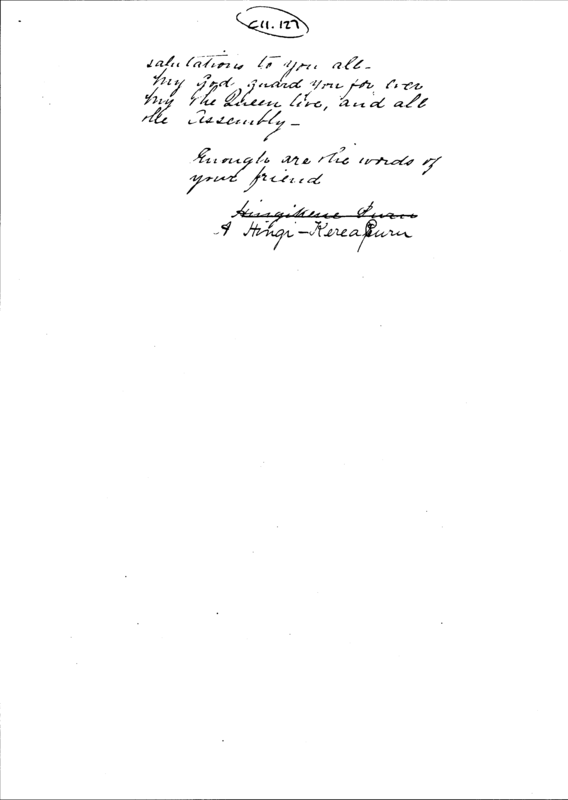 C11.127
salutations to you all-
My God guard you for ever
My The Queen live, and all
the Assembly-
Enough are the words of
your friend
Hingikene Puru
A Hingi-Kerea Puru